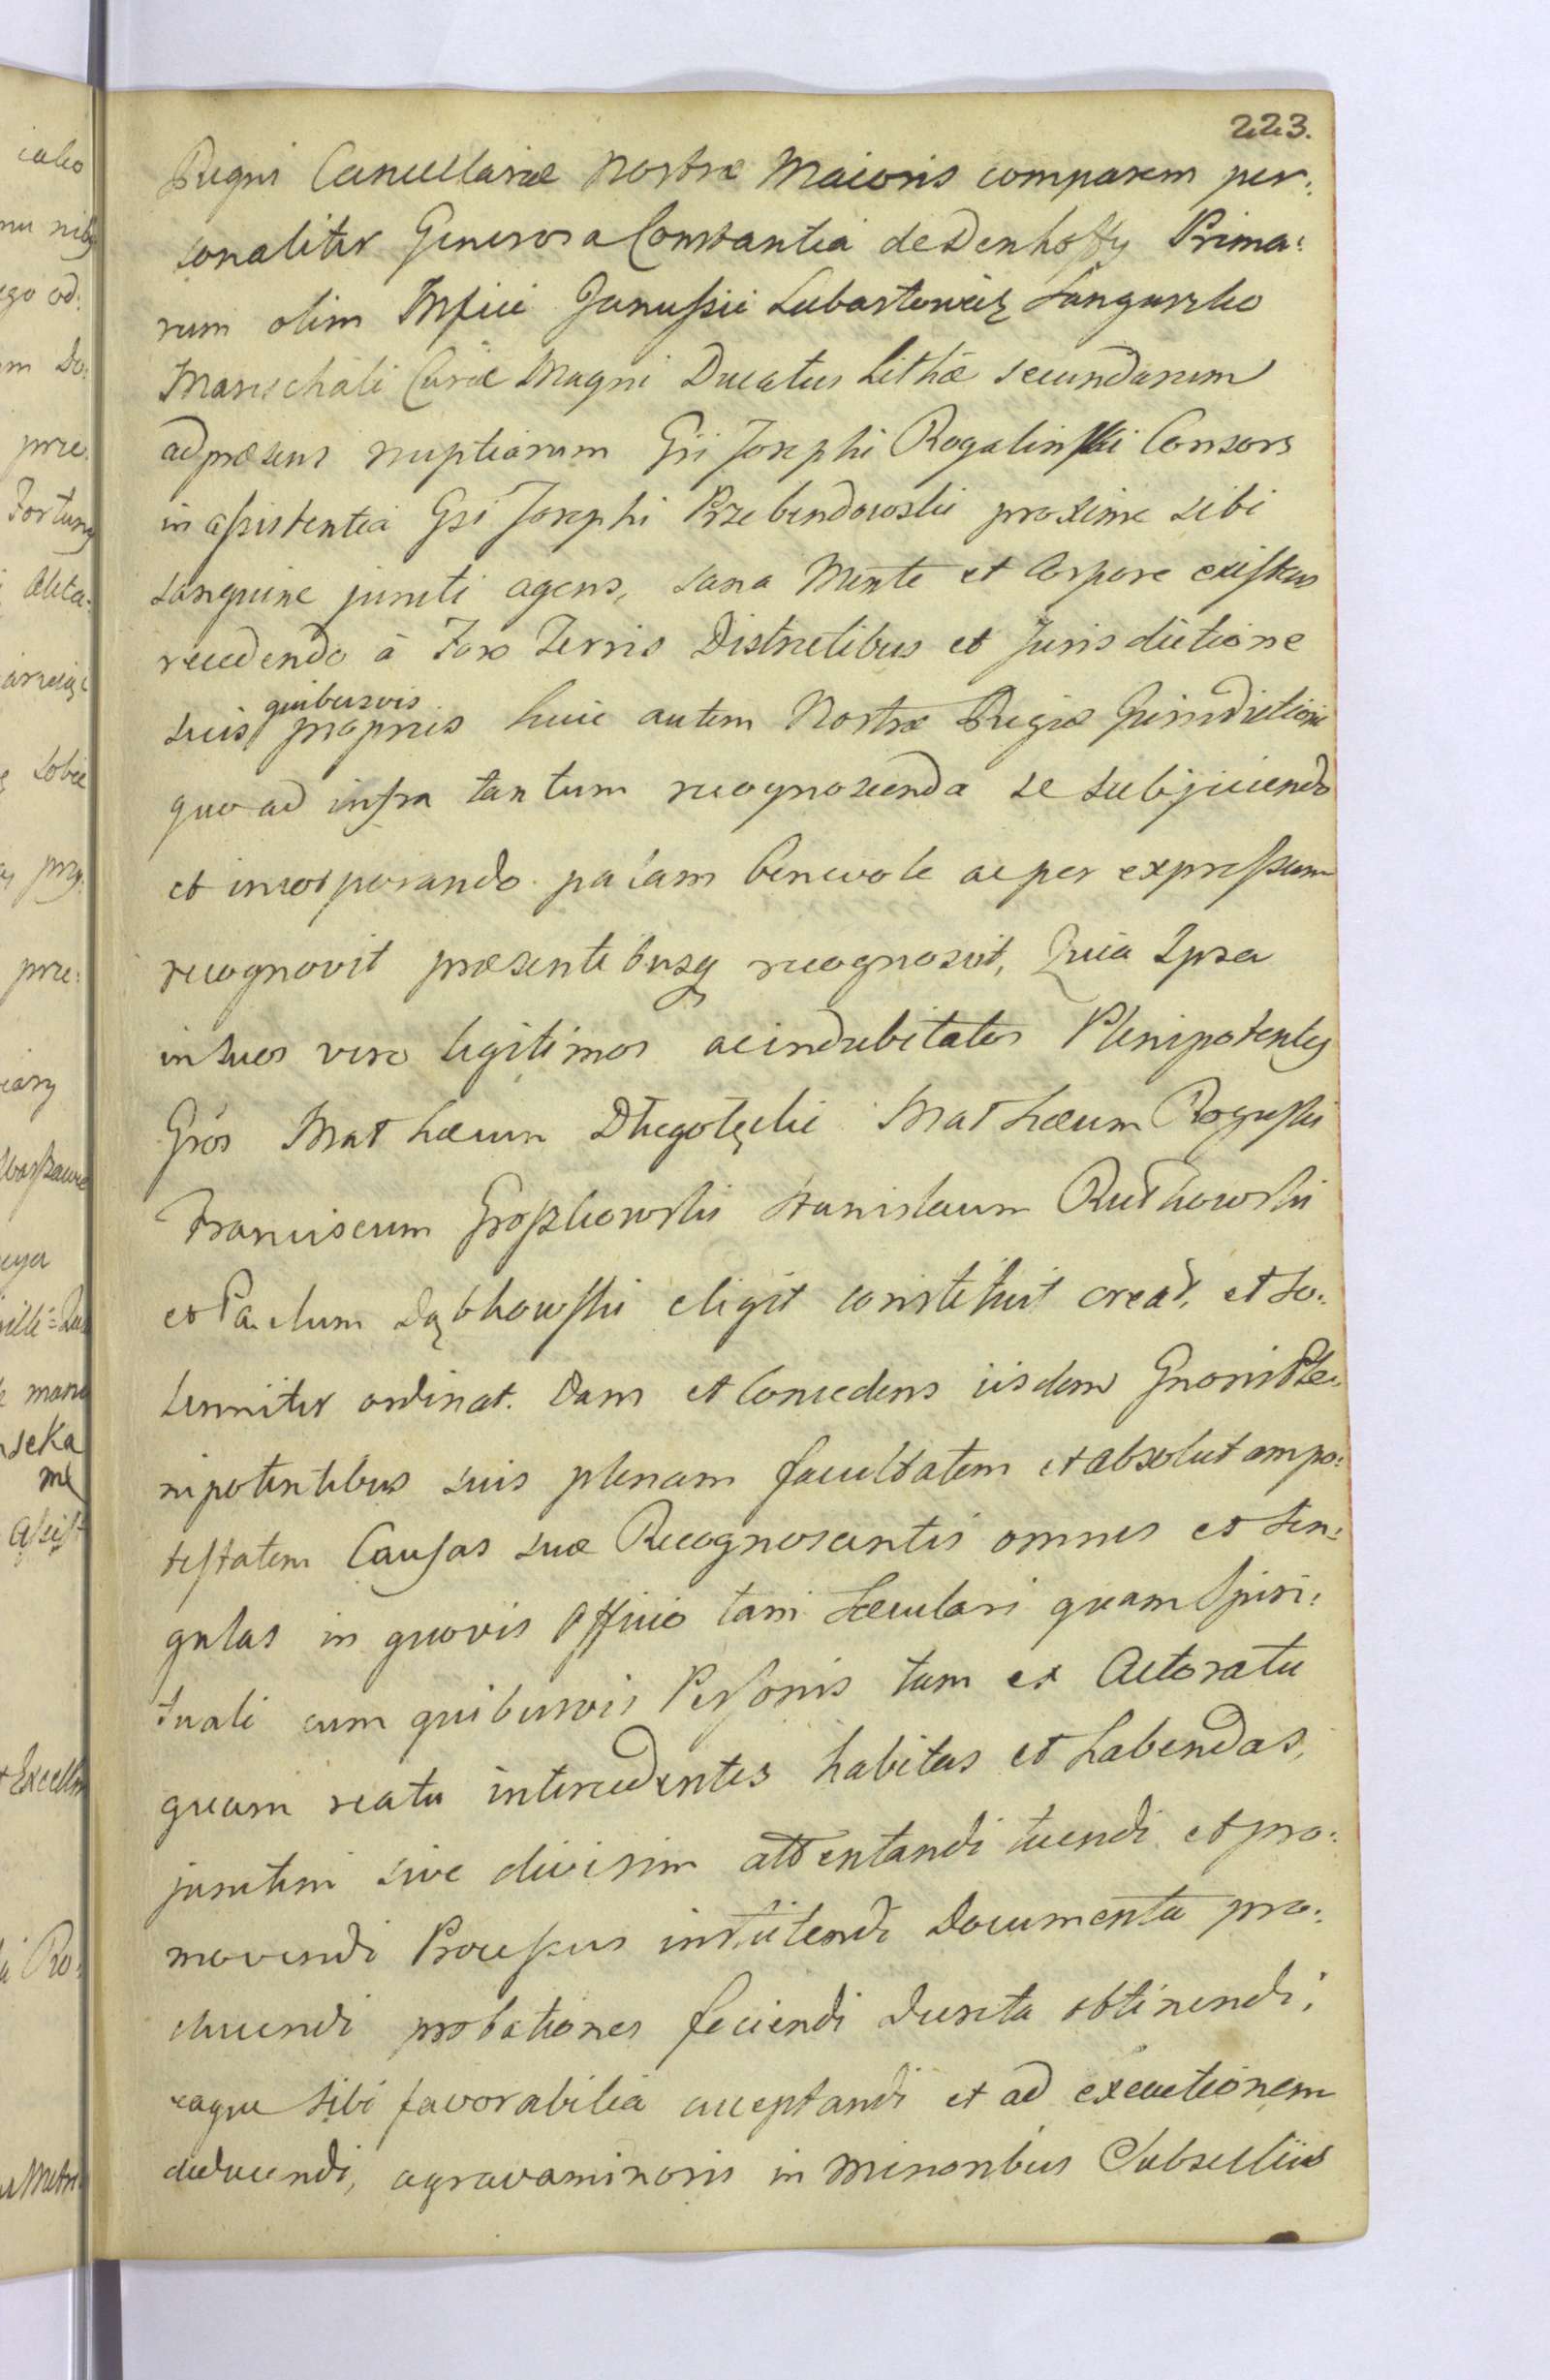 223.
Regni Cancellariæ Nostræ Maioris comparens per:
sonaliter Generosa Constantia de Denhoffy Prima:
rum olim Mfici Janussii Lubartowicz Sanguszko
Marischali Curiæ Magni Ducatus Lithæ secundarum
ad præsens nuptiarum Gsi Josephi Rogalinski Consors
in assistentia Gsi Josephi Przebendowski proxime sibi
sanguine juncti agens, sana Mente et Corpore existens
recedendo à Foro Terris Districtibus et Jurisdictione
suis quibusvis propriis huic autem Nostræ Regiæ Jurisdictioni
quo ad infra tantum recognoscenda se subijciendo
et incorporando palam benevole ac per expressum
recognovit præsentibusq recognoscit, Quia Ipsa
in suos vero legitimos ac indubitatos Plenipotentes
Gsos Mathæum Długołęcki Mathæum Roguski
Franciscum Groszkowski Stanislaum Rutkowski
et Paulum Dąbkowski eligit constituit creat, et so:
lenniter ordinat. Dans et Concedens iisdem Gnosis Ple:
nipotentibus suis plenam facultatem et absolutam po:
testatem Causas suæ Recognoscentis omnes et sin:
gulas in quovis Officio tam Sæculari quam Spiri:
tuali cum quibusvis Personis tam ex Actoratu
quam reatu intercedentes habitas et habendas,
junctim sive divisim attentandi tuendi et pro:
movendi Processus instituendi Documenta pro:
ducendi probationes faciendi Decreta obtinendi,
eaque sibi favorabilia acceptandi et ad executionem
deducendi, agravaminoris in Minoribus Subselliis